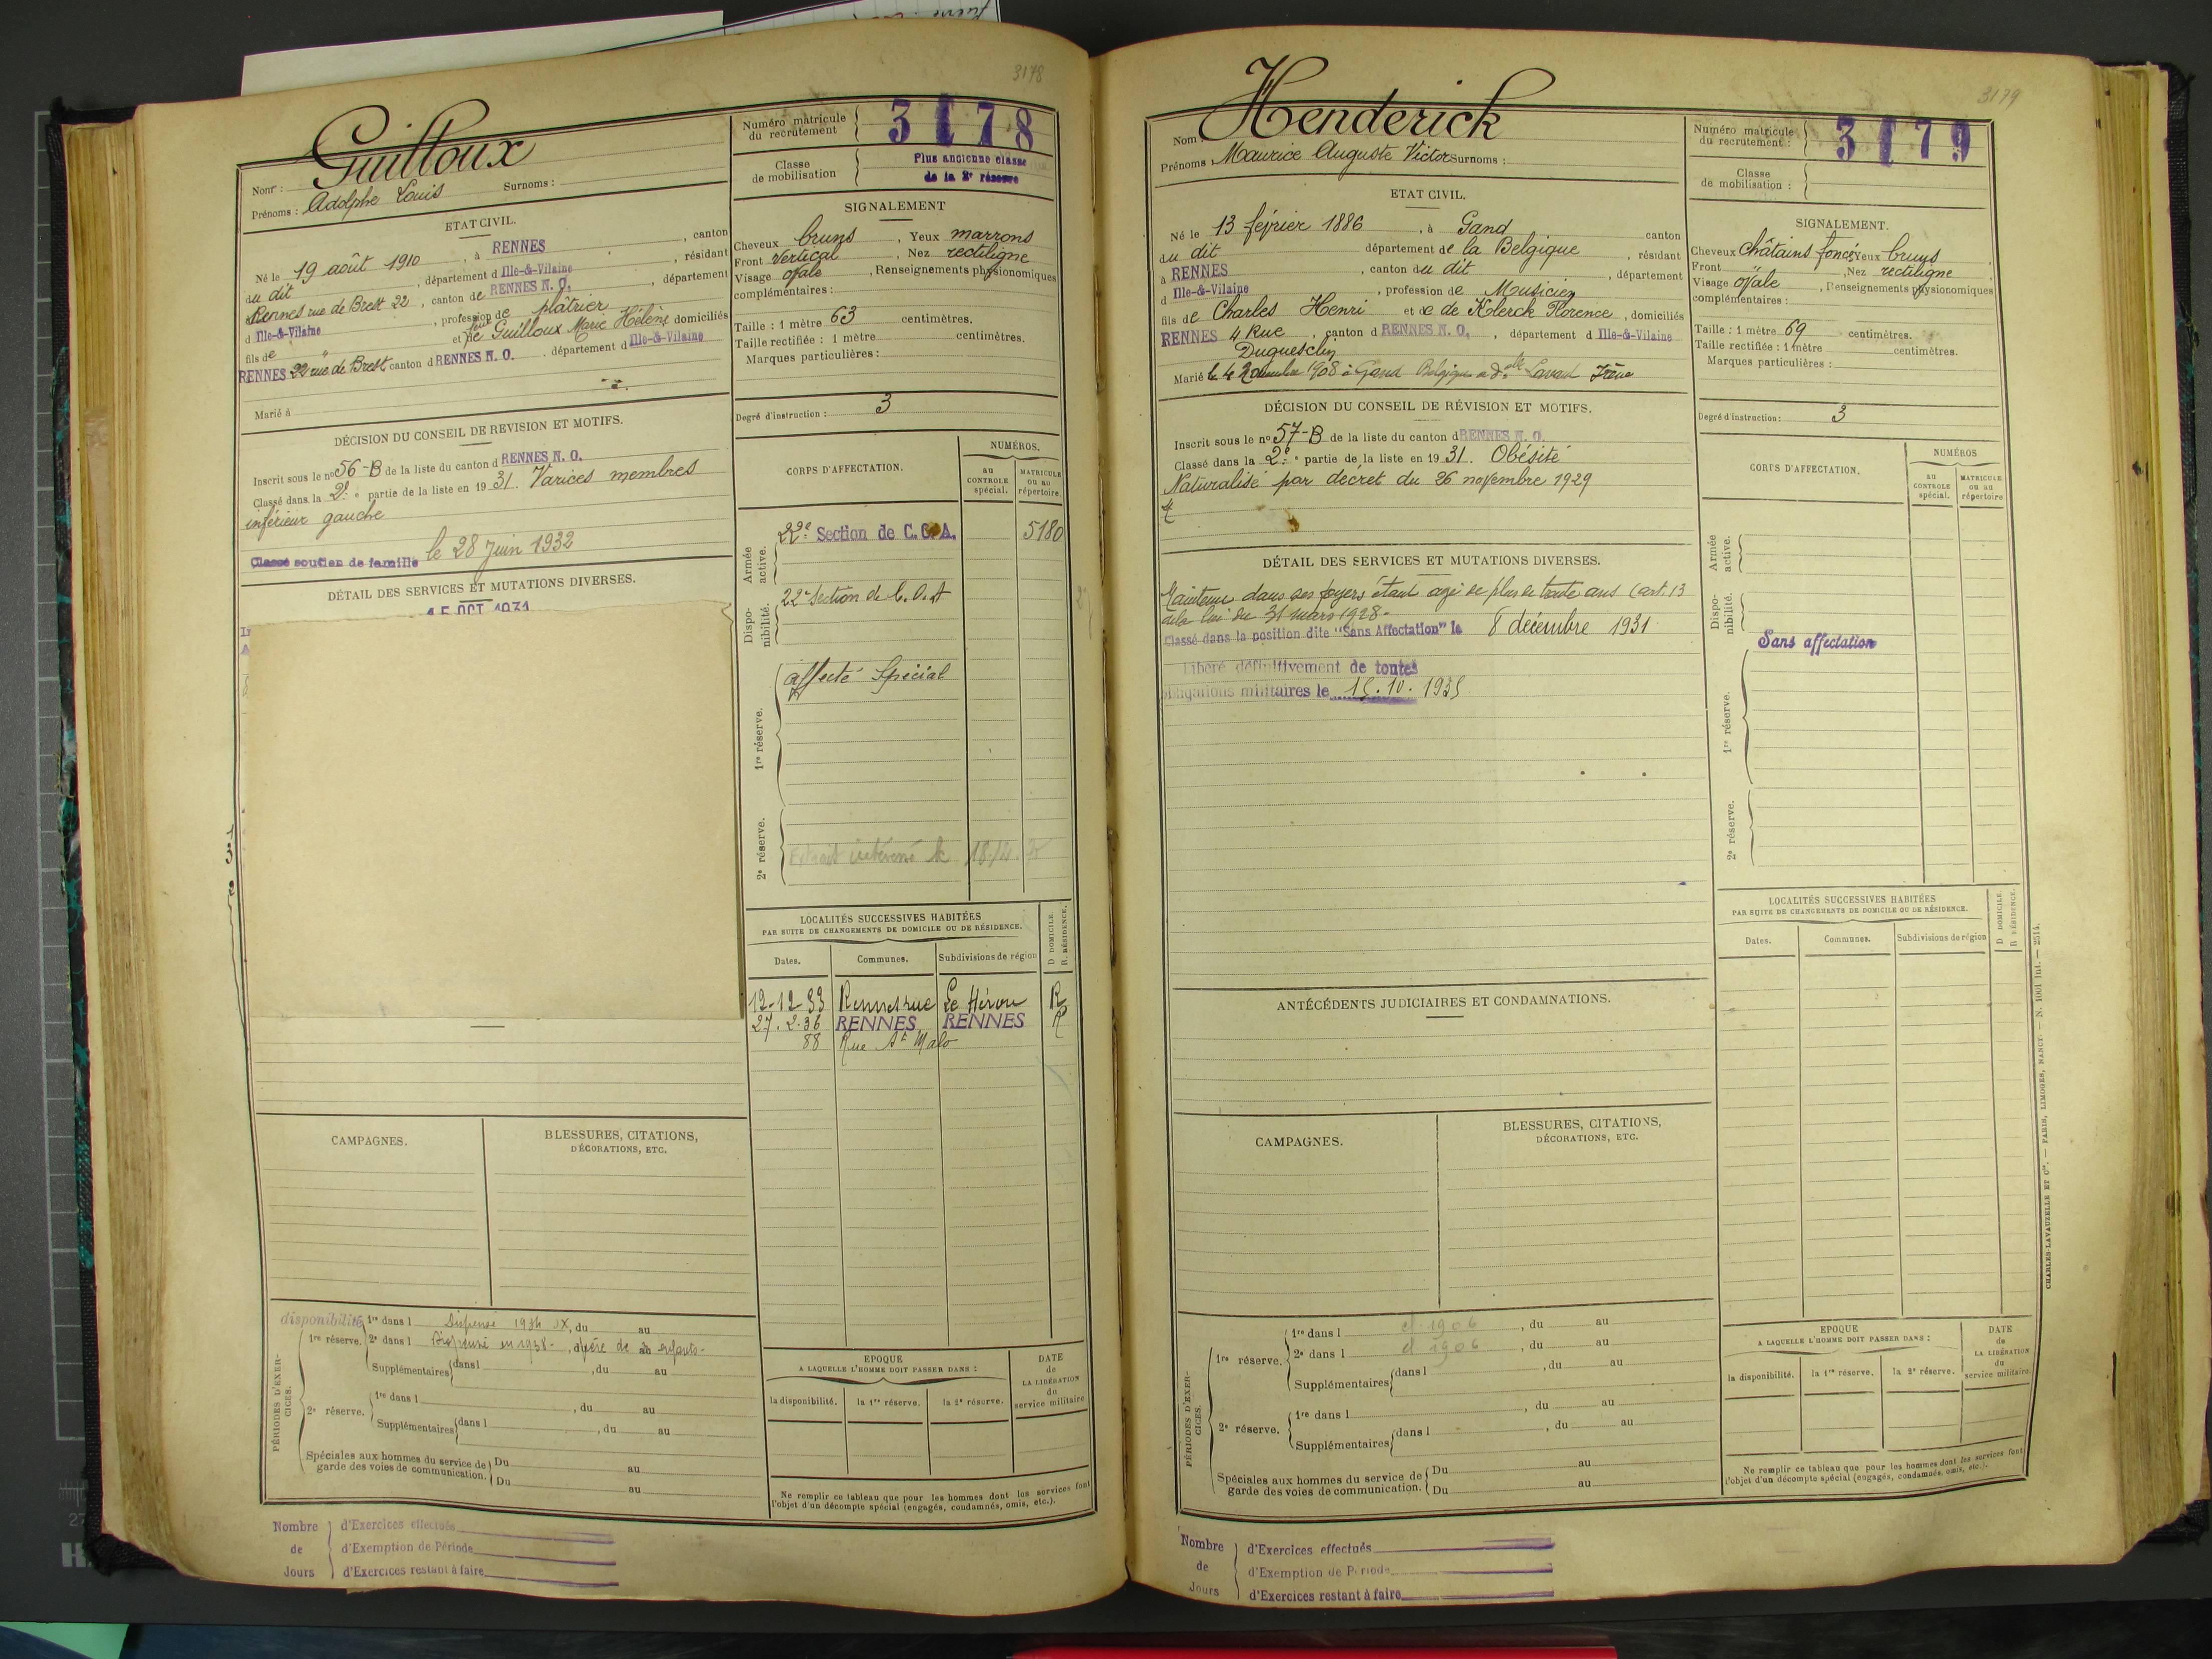 3178
Guilloux
Nom :
Prénoms : Adolphe Louis Surnoms :
Numéro matricule du recrutement 3178
Classe de mobilisation Plus ancienne classe de la 2e réserve
ETAT CIVIL.
Né le 19 août 1910, à RENNES, canton
du dit, département d Ille-&-Vilaine, résidant
Rennes rue de Brest 22, canton de RENNES N. O., département
d Ille-&-Vilaine, profession de plâtrier
fils de " et de feue Guilloux Marie Hélène domiciliés
RENNES 22 rue de Brest canton d RENNES N. O. département d Ille-&-Vilaine
Marié à
SIGNALEMENT
Cheveux bruns, Yeux marrons
Front Vertical, Nez rectiligne
Visage ovale, Renseignements physionomiques
complémentaires :
Taille : 1 mètre 63 centimètres.
Taille rectifiée : 1 mètre centimètres.
Marques particulières :
Degré d'instruction : 3
DÉCISION DU CONSEIL DE REVISION ET MOTIFS.
Inscrit sous le no 56-B de la liste du canton d RENNES N. O.
Classé dans la 2e partie de la liste en 1931. Varices membres
inférieur gauche
Classé soutien de famille le 28 Juin 1932
DÉTAIL DES SERVICES ET MUTATIONS DIVERSES.
15 OCT 1931
CORPS D'AFFECTATION.
NUMÉROS.
au CONTROLE spécial.
MATRICULE ou au répertoire.
Armée active.
22e Section de C. O. A. 5180
Disponibilité.
22e Section de C.O.A
1re réserve.
affecté Spécial
2e réserve.
LOCALITÉS SUCCESSIVES HABITÉES
PAR SUITE DE CHANGEMENTS DE DOMICILE OU DE RÉSIDENCE.
D DOMICILE.
R. RÉSIDENCE.
Dates. Communes. Subdivisions de région
12-12-33 Rennes rue Le Héron R
27.2.36 RENNES RENNES R
88 Rue St Malo
CAMPAGNES.
BLESSURES, CITATIONS,
DÉCORATIONS, ETC.
PÉRIODES D'EXERCICES.
disponibilité 1re dans l Dispensé 1934 IX, du au
1re réserve. 2e dans l Dispensé en 1938, père de enfants.
Supplémentaires dans l, du au
2e réserve. 1re dans l, du au
Supplémentaires dans l, du au
Spéciales aux hommes du service de garde des voies de communication. Du au
Du au
EPOQUE
A LAQUELLE L'HOMME DOIT PASSER DANS :
la disponibilité. la 1re réserve. la 2e réserve.
DATE de LA LIBÉRATION du service militaire
Ne remplir ce tableau que pour les hommes dont les services font
l'objet d'un décompte spécial (engagés, condamnés, omis, etc.).
Nombre de Jours
d'Exercices effectués
d'Exemption de Période
d'Exercices restant à faire
3179
Henderick
Nom
Prénoms : Maurice Auguste Victor Surnoms :
Numéro matricule du recrutement : 3179
Classe de mobilisation :
ETAT CIVIL.
Né le 13 février 1886, à Gand canton
du dit département de la Belgique, résidant
à RENNES, canton du dit, département
d Ille-&-Vilaine, profession de Musicien
fils de Charles Henri et de de Klerck Florence, domiciliés
RENNES 4 Rue Duguesclin, canton d RENNES N. O., département d Ille-&-Vilaine
Marié le 4 Novembre 1908 à Gand Belgique à delle Lavaut Irène
SIGNALEMENT.
Cheveux Châtains foncé, Yeux bruns
Front ", Nez rectiligne
Visage ovale, Renseignements physionomiques
complémentaires :
Taille : 1 mètre 69 centimètres.
Taille rectifiée : 1 mètre centimètres.
Marques particulières :
Degré d'instruction : 3
DÉCISION DU CONSEIL DE RÉVISION ET MOTIFS.
Inscrit sous le no 57-B de la liste du canton d RENNES N. O.
Classé dans la 2e partie de la liste en 1931. Obésité
Naturalisé par décret du 26 novembre 1929
DÉTAIL DES SERVICES ET MUTATIONS DIVERSES.
Maintenu dans ses foyers étant agé de plus de trente ans (art. 13
de la loi du 31 mars 1928.
Classé dans la position dite "Sans Affectation" le 8 décembre 1931
Libéré définitivement de toutes
obligations militaires le 15.10.1935
CORPS D'AFFECTATION.
NUMÉROS
au CONTROLE spécial.
MATRICULE ou au répertoire
Armée active.
Disponibilité.
Sans affectation
1re réserve.
2e réserve.
LOCALITÉS SUCCESSIVES HABITÉES
PAR SUITE DE CHANGEMENTS DE DOMICILE OU DE RÉSIDENCE.
D DOMICILE
R RÉSIDENCE.
Dates. Communes. Subdivisions de région
ANTÉCÉDENTS JUDICIAIRES ET CONDAMNATIONS.
CAMPAGNES.
BLESSURES, CITATIONS,
DÉCORATIONS, ETC.
PÉRIODES D'EXERCICES.
1re réserve. 1re dans l cl. 1906, du au
2e dans l cl 1906, du au
Supplémentaires dans l, du au
2e réserve. 1re dans l, du au
Supplémentaires dans l, du au
Spéciales aux hommes du service de garde des voies de communication. Du au
Du au
EPOQUE
A LAQUELLE L'HOMME DOIT PASSER DANS :
la disponibilité. la 1re réserve. la 2e réserve.
DATE de LA LIBÉRATION du service militaire
Ne remplir ce tableau que pour les hommes dont les services font
l'objet d'un décompte spécial (engagés, condamnés, omis, etc.).
Nombre de Jours
d'Exercices effectués
d'Exemption de Période
d'Exercices restant à faire
CHARLES-LAVAUZELLE ET Cie. — PARIS, LIMOGES, NANCY. — N. 1001 int. — 2514.